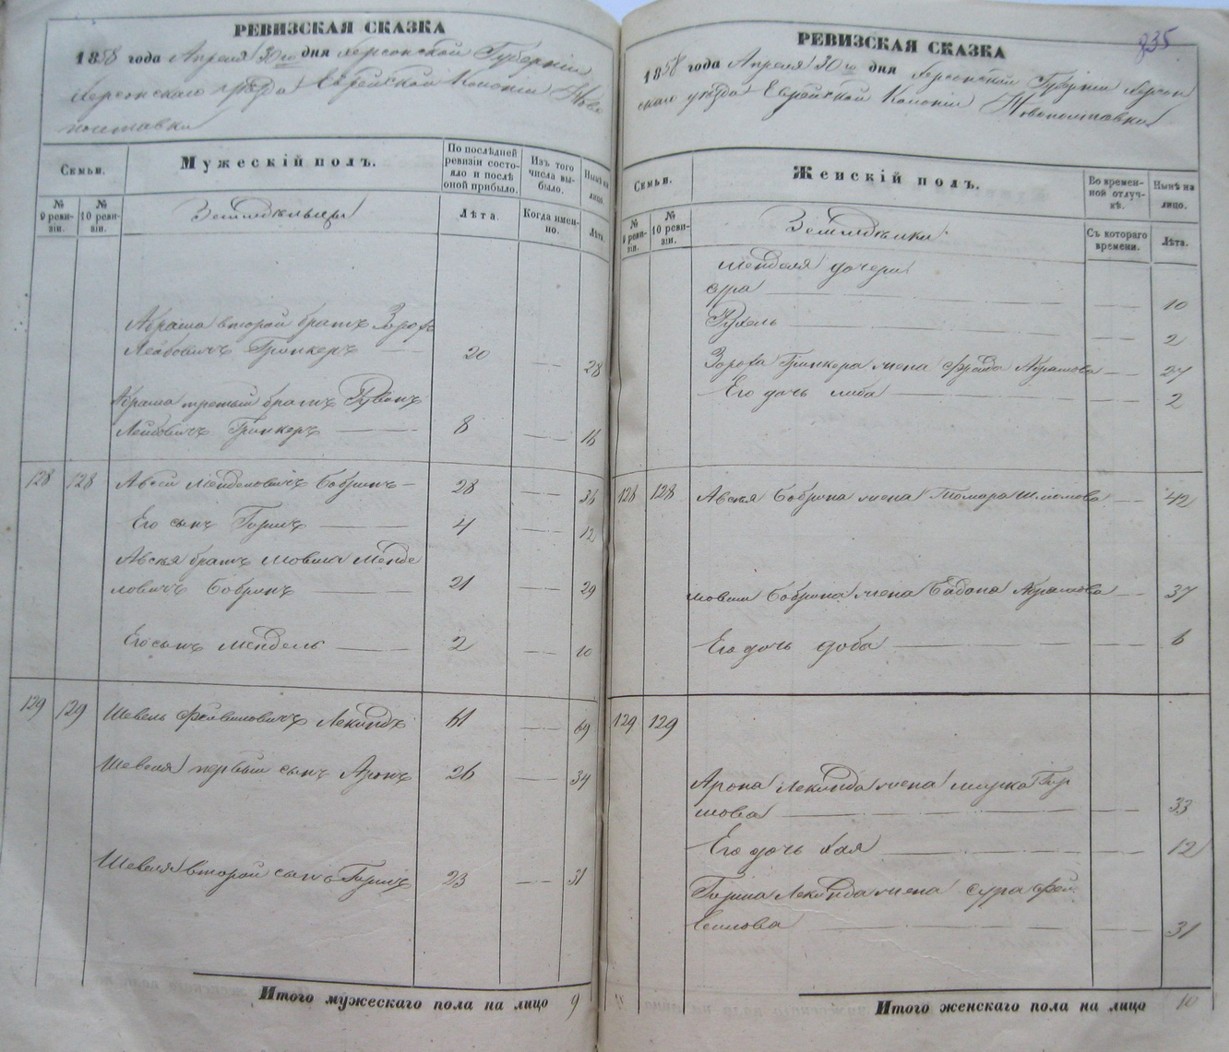 РЕВИЗСКАЯ СКАЗКА
1858 года Апреля 30го дня Херсонской Губерніи
Херсонскаго уѣзда Еврейской Колоніи Ново
полтавки
Семьи.
Мужескій полъ.
По послѣдней ревизіи состояло и послѣ оной прибыло.
Изъ того числа выбыло.
Нынѣ на лицо.
№ 9 ревизіи.
№ 10 ревизіи.
Земледѣльцы
Лѣта.
Когда именно.
Лѣта.
Абрама второй братъ Зорохъ
Лейбовичъ Гринкеръ 20 28
Абрама третій братъ Рувенъ
Лейбовичъ Гринкеръ 8 16
128 128 Авсей Менделовичъ Бобринъ 28 36
Его сынъ Гершъ 4 12
Авсея братъ Мовша Менде
ловичъ Бобринъ 21 29
Его сынъ Мендель 2 10
129 129 Шевель Фейвиловичъ Лекиндъ 61 69
Шевеля первый сынъ Аронъ 26 34
Шевеля второй сынъ Гершъ 23 31
Итого мужескаго пола на лицо 9
835
РЕВИЗСКАЯ СКАЗКА
1858 года Апреля 30го дня Херсонской Губерніи Херсон
скаго уѣзда Еврейской Колоніи Новополтавки
Семьи.
Женскій полъ.
Во временной отлучкѣ.
Нынѣ на лицо.
№ 9 ревизіи.
№ 10 ревизіи.
Земледѣлки
Съ котораго времени.
Лѣта.
Менделя дочери
Сура 10
Рухель 2
Зороха Гринкера жена Фрейда Абрамова 27
Его дочь Либа 2
128 128 Авсея Бобрина жена Томара Шломова 42
Мовши Бобрина жена Бадана Абрамова 37
Его дочь Доба 6
129 129
Арона Лекинда жена Мирка Гер
шова 33
Его дочь Хая 12
Герша Лекинда жена Сура Фей
31
Итого женскаго пола на лицо 10